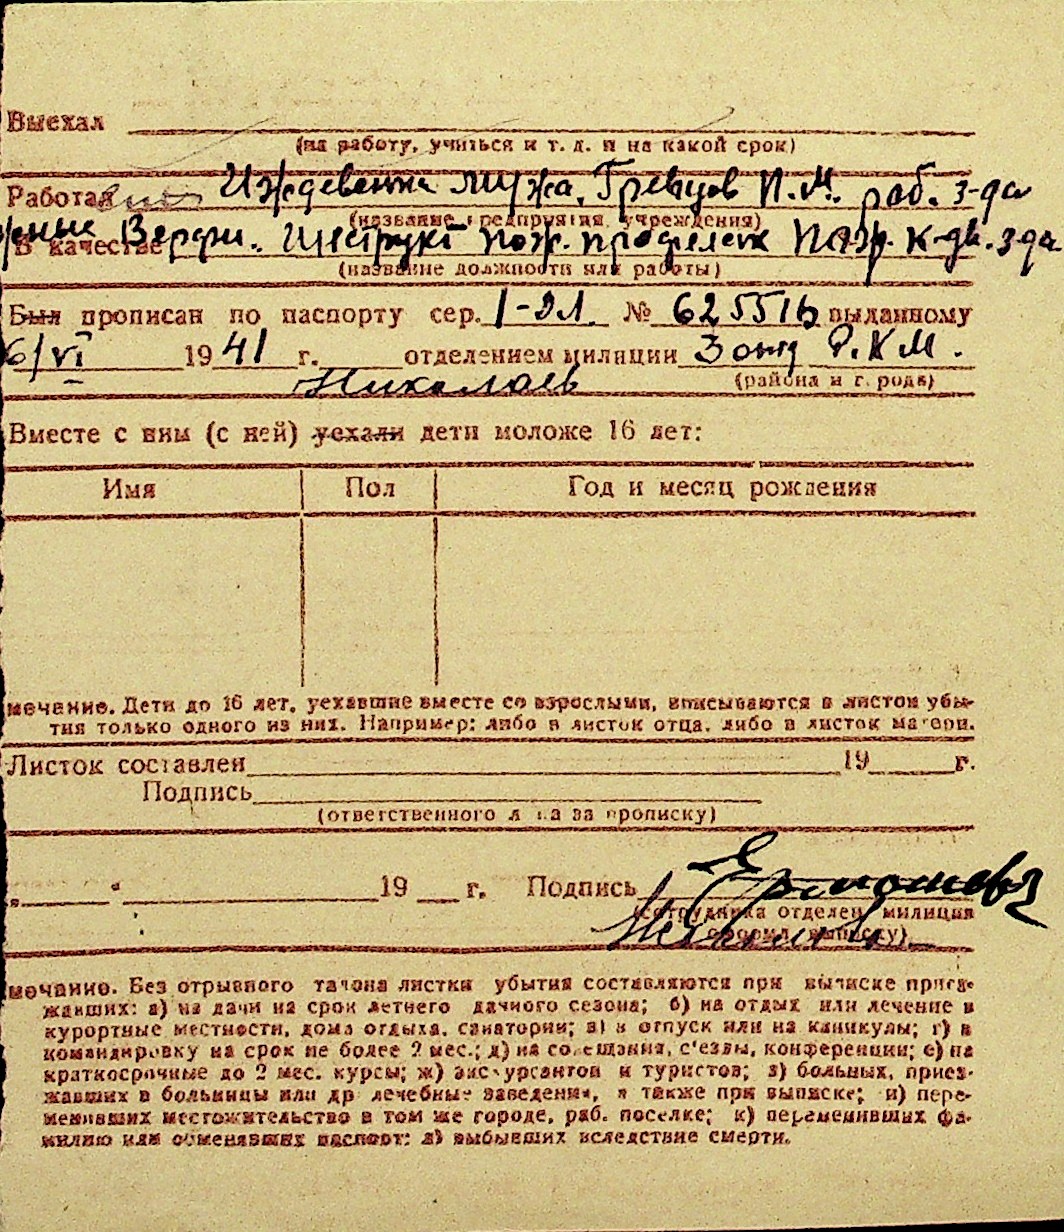 Выехал
(на работу, учиться и т. д. и на какой срок)
Работал Иждевенка мужа, Гревцов П.М. раб. з-да
(название предприятия, учреждения)
В качестве Верфи. Инструкт пож. профилак пож. к-ды. з-да
(название должности или работы)
Был прописан по паспорту сер. I-ЭЛ № 625516 выданному
6/VI 1941 г. отделением милиции 3 отд Р.К.М.
Николаев (района и города)
Вместе с ним (с ней) уехали дети моложе 16 лет:
Имя Пол Год и месяц рождения
мечание. Дети до 16 лет, уехавшие вместе со взрослыми, вписываются в листок убы-
тия только одного из них. Например: либо в листок отца, либо в листок матери.
Листок составлен 19 г.
Подпись
(ответственного лица за прописку)
19 г. Подпись
(сотрудника отделен. милиции
оформ. выписку)
мечание. Без отрывного талона листки убытия составляются при выписке приез-
жавших: а) на дачи на срок летнего дачного сезона; б) на отдых или лечение в
курортные местности, дома отдыха, санатории; в) в отпуск или на каникулы; г) в
командировку на срок не более 2 мес.; д) на совещания, с'езды, конференции; е) на
краткосрочные до 2 мес. курсы; ж) экскурсантов и туристов; з) больных, приез-
жавших в больницы или др лечебные заведения, а также при выписке; и) пере-
менивших местожительство в том же городе, раб. поселке; к) переменивших фа-
милию или обменявших паспорт; л) выбывших вследствие смерти.